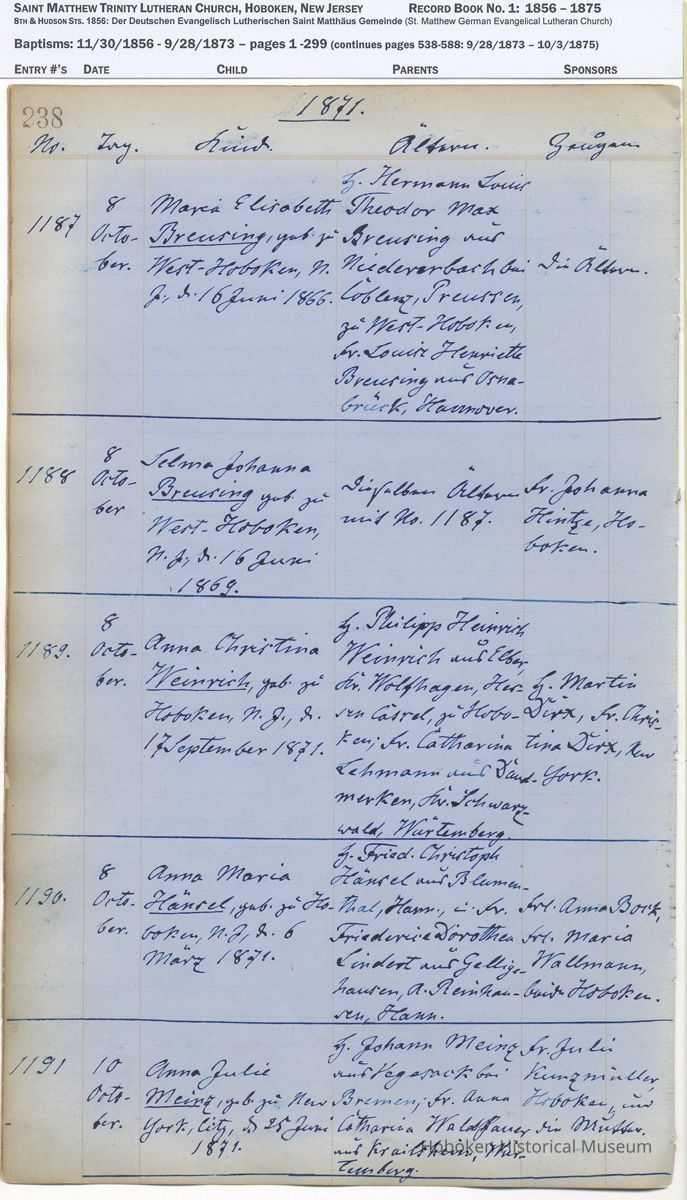 SAINT MATTHEW TRINITY LUTHERAN CHURCH, HOBOKEN, NEW JERSEY RECORD BOOK NO. 1: 1856 – 1875
8TH & HUDSON STS. 1856: Der Deutschen Evangelisch Lutherischen Saint Matthäus Gemeinde (St. Matthew German Evangelical Lutheran Church)
Baptisms: 11/30/1856 - 9/28/1873 – pages 1 -299 (continues pages 538-588: 9/28/1873 – 10/3/1875)
ENTRY #'S DATE CHILD PARENTS SPONSORS
238
1871.
No. Tag. Kind. Ältern. Zeugen
1187
8
Octo-
ber.
Maria Elisabeth
Breusing, geb. zu
West-Hoboken, N.
J., d. 16 Juni 1866.
H. Hermann Louis
Theodor Max
Breusing aus
Niedererbach bei
Coblenz, Preussen,
zu West-Hoboken,
Fr. Louise Henriette
Breusing aus Osna-
brück, Hannover.
Die Ältern.
1188
8
Octo-
ber
Selma Johanna
Breusing geb. zu
West-Hoboken,
N. J., d. 16 Juni
1869.
Dieselben Ältern
wie No. 1187.
Fr. Johanna
Hintze, Ho-
boken.
1189.
8
Octo-
ber.
Anna Christina
Weinrich, geb. zu
Hoboken, N. J., d.
17 September 1871.
H. Philipp Heinrich
Weinrich aus Elber,
Kr. Wolfhagen, Hes-
sen Cassel, zu Hobo-
ken; Fr. Catharina
Lehmann aus
merken, Kr. Schwarz-
wald, Würtemberg.
H. Martin
Dirx, Fr. Chris-
tina Dirx, New
York.
1190.
8
Octo-
ber.
Anna Maria
Hänsel, geb. zu Ho-
boken, N. J., d. 6
März 1871.
H. Fried. Christoph
Hänsel aus Blumen-
thal, Hann., u. Fr.
Friederice Dorothea
Lindert aus Gellig-
hausen, A. Reinhau-
sen, Hann.
Frl. Anna Bock,
Frl. Maria
Wallmann,
beide Hoboken.
1191
10
Octo-
ber.
Anna Julie
Meinz, geb. zu New
York, City, d. 25 Juni
1871.
H. Johann Meinz
aus Vegesack bei
Bremen; Fr. Anna
Catharina
aus Krailsheim, Wür-
temberg.
Fr. Julie
Kunzmüller
Hoboken, und
die Mutter.
Hoboken Historical Museum